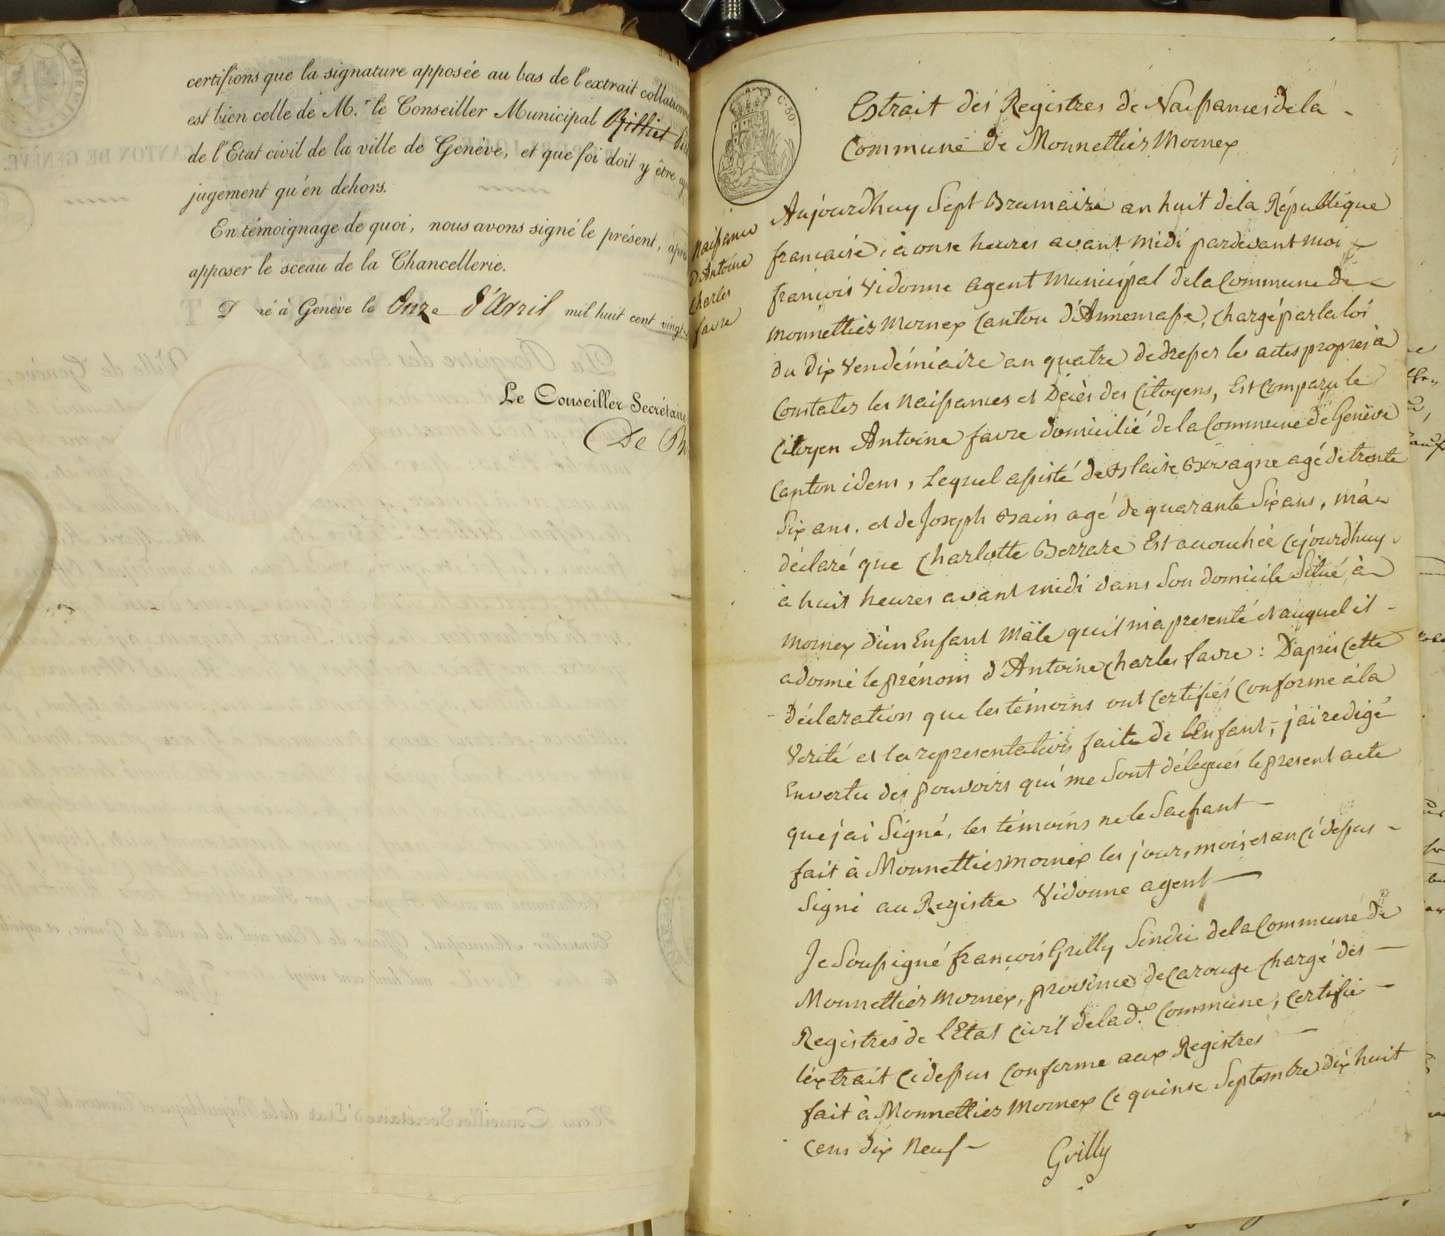 certifions que la signature apposée au bas de l'extrait
est bien celle de M.r le Conseiller Municipal Rilliet
de l'Etat civil de la ville de Genève, et que foi doit y être
jugement qu'en dehors.
En témoignage de quoi, nous avons signé le présent,
apposer le sceau de la Chancellerie.
D né à Genève le Onze d'Avril mil huit cent vingt
Le Conseiller Secrétaire
De
C. 50
Extrait des Registres de Naissances de la
Commune de Monnettier Mornex
Naissance
d'Antoine
Charles
favre
Aujourdhuy Sept Brumaire an huit de la République
française, à onse heures avant midi pardevant moi
françois Vidonne agent Municipal de la Commune de
Monnettier Mornex Canton d'Annemasse, chargé par la loi
du dix Vendémiaire an quatre de dresser les actes propres à
Constater les Naissances et Décès des Citoyens, Est Comparu le
Citoyen Antoine favre domicilié de la Commune de Genève
Canton idem, Lequel assisté de Blaise agé de trente
Six ans, et de Joseph Bain agé de quarante Six ans, m'a
déclaré que Charlotte Berrare Est accouchée cejourdhuy
à huit heures avant midi dans Son domicile Situé à
Mornex d'un Enfant Mâle qu'il m'a presenté et auquel il
a donné le prénom d'Antoine Charles favre : D'après Cette
Déclaration que les témoins ont Certifiés Conforme à la
Verité et la representation faite de l'Enfant, j'ai redigé
En vertu des pouvoirs qui me Sont délegués le present acte
que j'ai Signé, les témoins ne le Sachant
fait à Monnettier Mornex les jour, mois et an ci dessus
Signé au Registre Vidonne agent
Je Soussigné françois Grilly Sindic de la Commune de
Monnettier Mornex, province de Carouge Chargé des
Registres de l'Etat Civil de la d.e Commune, Certifie
l'éxtrait Ci dessus Conforme aux Registres
fait à Monnettier Mornex Ce quinse Septembre dix huit
Cens dix Neuf
Grilly